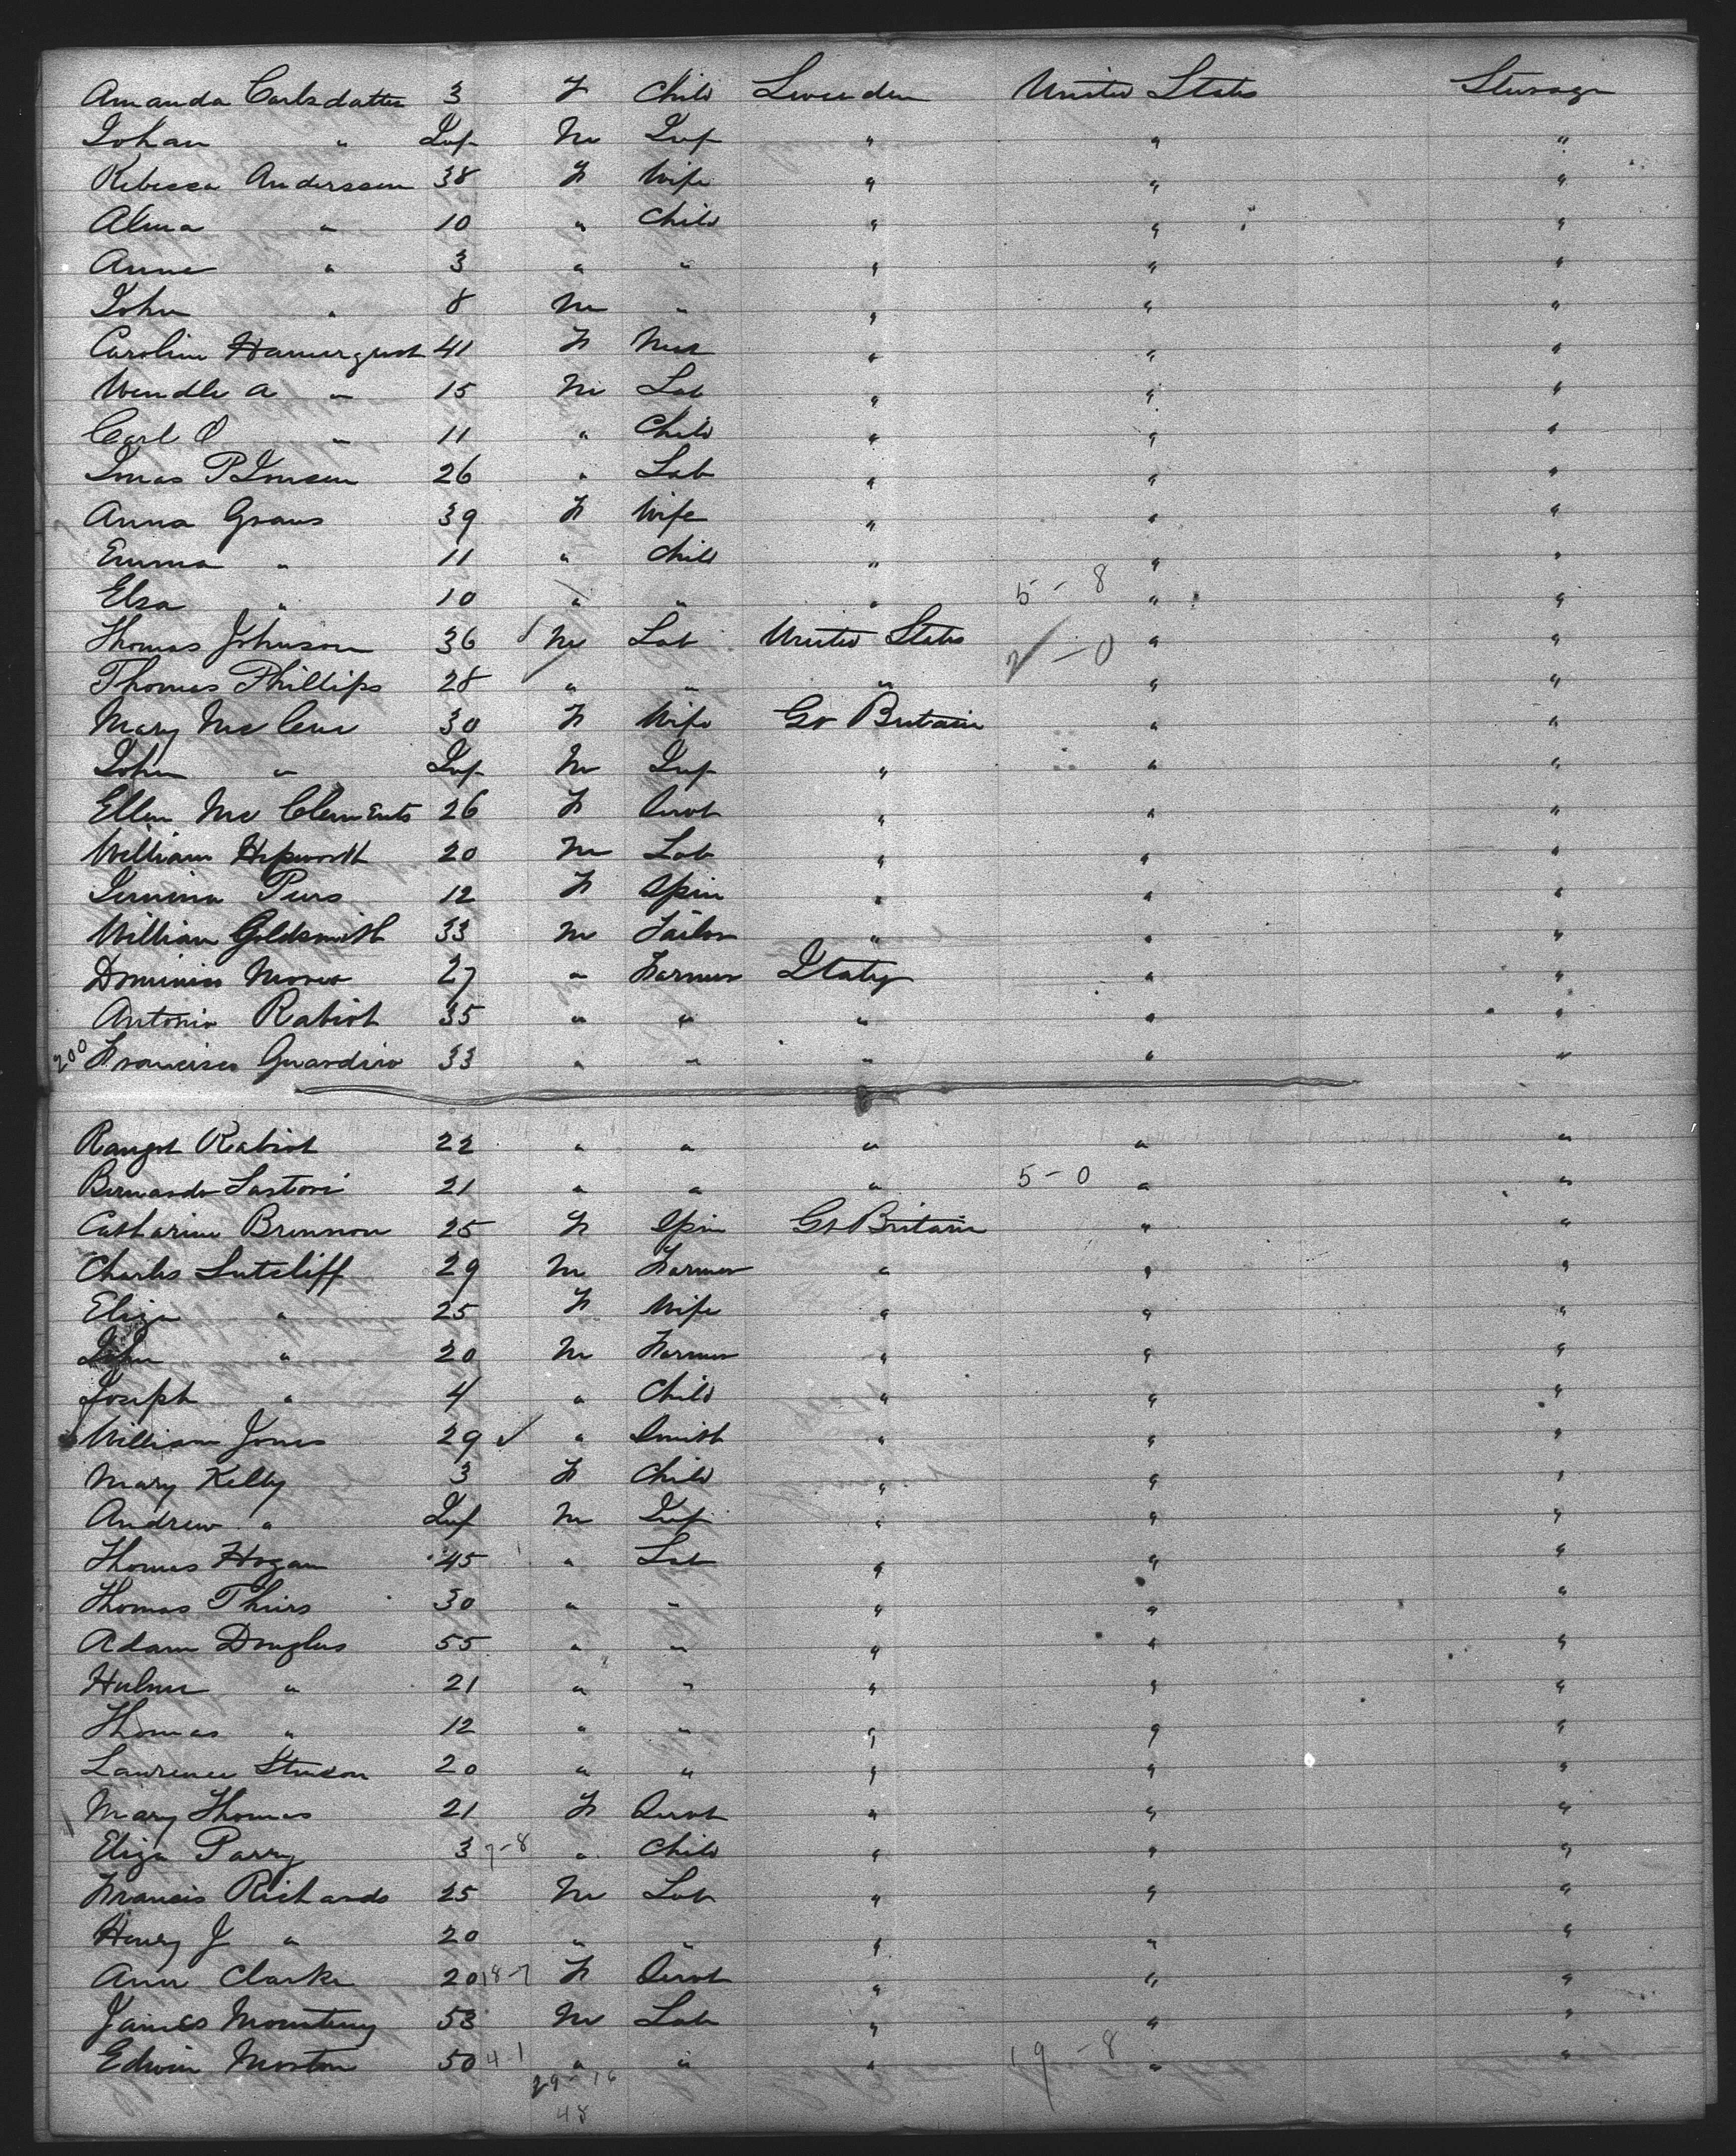 Amanda Carlsdatter 3 F Child Sweeden United States Steerage
Johan " Inf M Inf " " "
Rebecca Anderssen 38 F Wife " " "
Alma " 10 " Child " " "
Anne " 3 " " " " "
John " 8 M " " " "
Caroline Hamerqvist 41 F " " "
Wendle A " 15 M Lab " " "
Carl O " 11 " Child " " "
Jonas P Jonsen 26 " Lab " " "
Anna Graus 39 F Wife " " "
Emma " 11 " Child " " "
Elsa " 10 " " " 5-8 " "
Thomas Johnson 36 M Lab United States 2-0 " "
Thomas Phillips 28 " " " " "
Mary Mc Cene 30 F Wife Gt Britain " "
John " Inf M Inf " " "
Ellen Mc Clements 26 F Servt " " "
William Hepworth 20 M Lab " " "
Jemima Piers 12 F Spin " " "
William Goldsmith 33 M Tailor " " "
Dominico 27 " Farmer Italy " "
Antonio Rabiot 35 " " " " "
200 Francisco Guardiro 33 " " " " "
Rabiot 22 " " " " "
Bernardo Sartori 21 " " " 5-0 " "
Catharine Brennon 25 F Spin Gt Britain " "
Charles Sutcliff 29 M Farmer " " "
Eliza " 25 F Wife " " "
John " 20 M Farmer " " "
Joseph " 4 " Child " " "
William Jones 29 ✓ " Smith " " "
Mary Kelly 3 F Child " " "
Andrew " Inf M Inf " " "
Thomas Hogan 45 " Lab " " "
Thomas Thiers 30 " " " " "
Adam Douglas 55 " " " " "
Hulme " 21 " " " " "
Thomas " 12 " " " " "
Lawrence 20 " " " " "
Mary Thomas 21 F Servt " " "
Eliza Parry 3 7-8 " Child " " "
Francis Richards 25 M Lab " " "
Henry J " 20 " " " " "
Ann Clarke 20 18-7 F Servt " " "
James Mounteny 53 M Lab " " "
Edwin Morton 50 4-1 " " " 19-8 " "
29-16
48